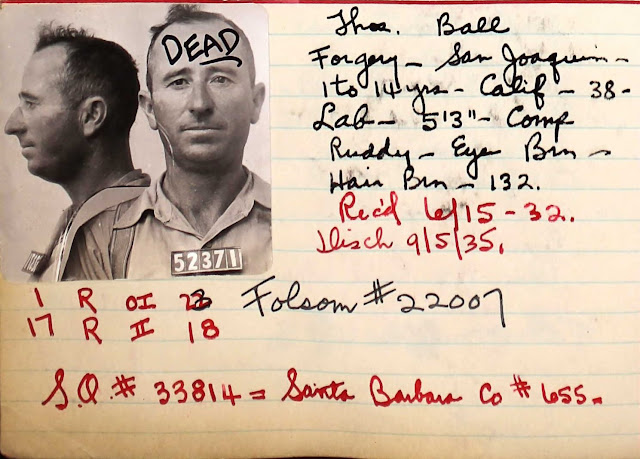 DEAD
52371
Thos. Ball
Forgery - San Joaquin -
1 to 14 yrs - Calif - 38 -
Lab - 5'3" - Comp
Ruddy - Eye Brn -
Hair Brn - 132.
Rec'd 6/15-32.
Disch 9/5/35.
1 R OI
17 R II 18
Folsom # 22007
S.Q. # 33814 = Santa Barbara Co # 655.